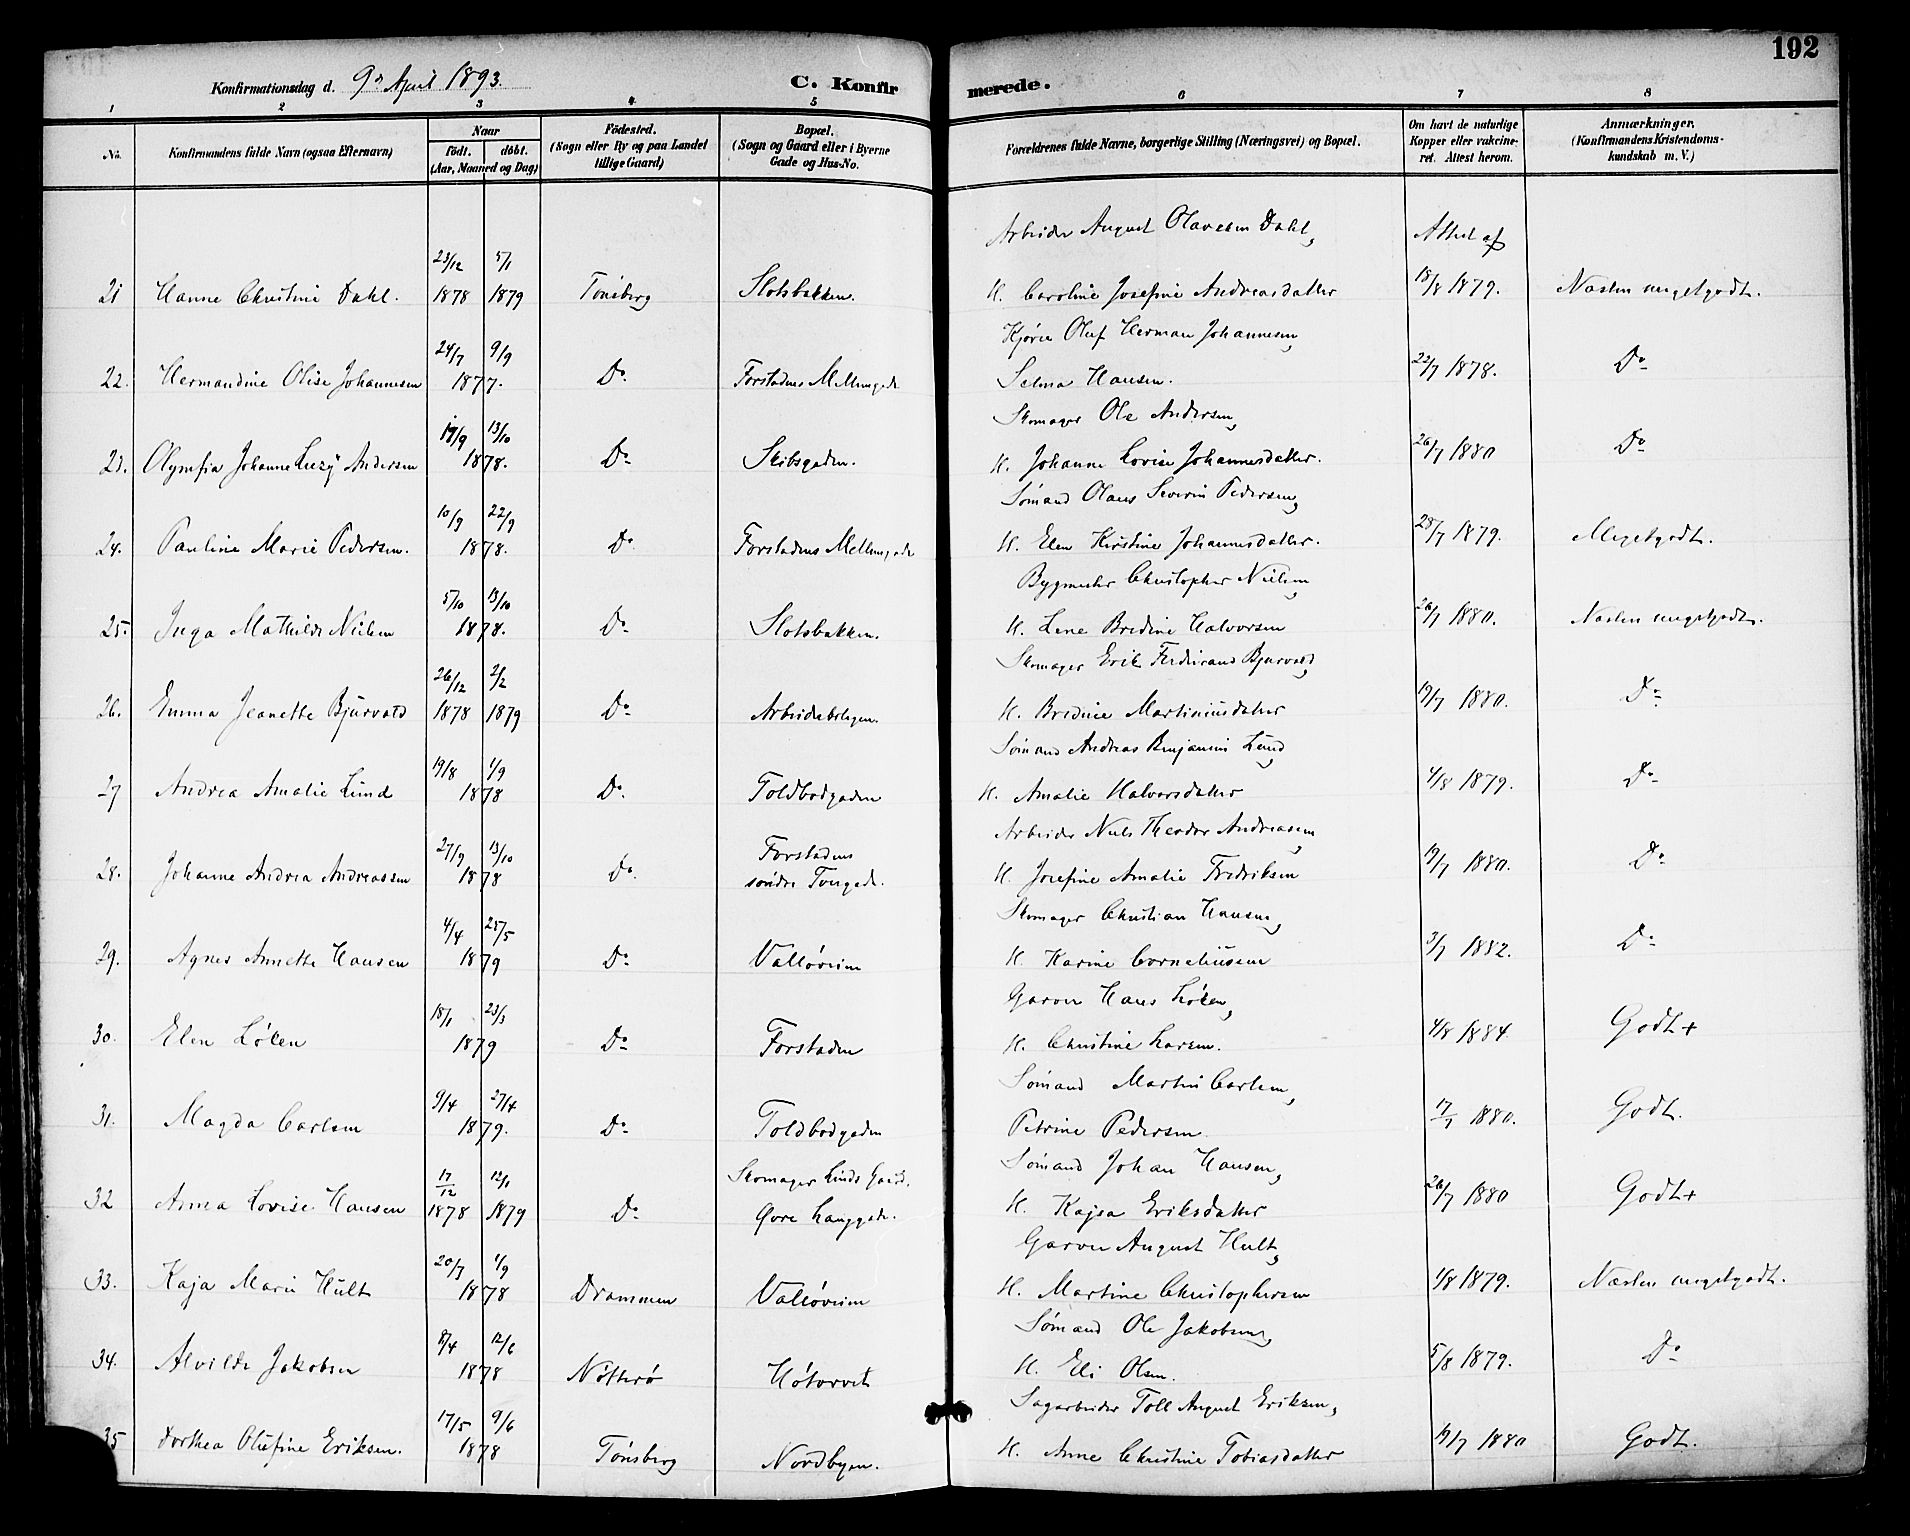 192
Konfirmationsdag d. 9de April 1893.
C. Konfirmerede.
1 2 3 4 5 6 7 8
No.
Konfirmandens fulde Navn (ogsaa Efternavn)
Naar
født. døbt.
(Aar, Maaned og Dag)
Fødested.
(Sogn eller By og paa Landet
tillige Gaard)
Bopæl.
(Sogn og Gaard eller i Byerne
Gade og Hus-No.
Forældrenes fulde Navne, borgerlige Stilling (Næringsvei) og Bopæl.
Om havt de naturlige
Kopper eller vakcine-
ret. Attest herom.
Anmærkninger.
(Konfirmandens Kristendoms-
kundskab m. V.)
Arbeider August Olavesen Dahl, Attest af
23/12 5/1
21 Hanne Christine Dahl. 1878 1879 Tønsberg Slotsbakken. H. Caroline Josefine Andreasdatter 18/8 1879. Næsten megetgodt.
24/7 9/9 Kjører Oluf Herman Johannesen,
22. Hermandine Olise Johannesen 1877. Do. Forstadens Mellemgade Selma Hansen. 22/7 1878. Do
19/9 13/10 Skomager Ole Andersen,
23. Olymfia Johanne Luzy Andersen 1878. Do Skibsgaden. H. Johanne Lovise Johannesdatter. 26/7 1880 Do
10/9 22/9 Sømand Olaus Severin Pedersen,
24. Pauline Marie Pedersen. 1878. Do Forstadens Mellemgade H. Elen Kirstine Johannesdatter. 28/7 1879. Megetgodt.
5/10 13/10 Bygmester Christopher Nielsen,
25. Inga Mathilde Nielsen 1878. Do Slotsbakken. H. Lene Bredine Halvorsen 26/7 1880. Næsten megetgodt.
26/12 2/2 Skomager Erik Ferdinand Bjurvald,
26. Emma Jeanette Bjurvald 1878 1879 Do Arbeiderboligen. H. Bredine Martiniusdatter 19/7 1880. Do
19/8 1/9 Sømand Andreas Benjamin Lund,
27 Andrea Amalie Lund 1878 Do. Toldbodgaden H. Amalie Halvorsdatter 4/8 1879. Do
27/9 13/10 Forstadens Arbeider Niels Theodor Andreasen,
28. Johanne Andrea Andreassen 1878 Do. søndre Tvergade. H. Josefine Amalie Fredriksen 19/7 1880. Do
4/4 25/5 Skomager Christian Hansen,
29. Agnes Annette Hansen 1879 Do Valløveien H. Karine Corneliussen 3/7 1882. Do
18/1 23/3 Garver Hans Løken,
30. Elen Løken 1879 Do Forstaden H. Christine Larsen. 4/8 1884. Godt+
9/4 27/4 Sømand Martin Carlsen,
31. Magda Carlsen 1879. Do Toldbodgaden Petrine Pedersen 17/7 1880. Godt.
17/12 12/1 Skomager Linds Gaard. Sømand Johan Hansen,
32 Anna Lovise Hansen 1878 1879 Do Øvre Langgade. H. Kajsa Eriksdatter 26/7 1880 Godt+
20/7 1/9 Garver August Hult,
33. Kaja Marie Hult 1878 Drammen Valløveien H. Martine Christophersen 1/8 1879. Næsten megetgodt.
8/4 12/6 Sømand Ole Jakobsen,
34. Alvilde Jakobsen 1878 Nøtterø Høtorvet H. Eli Olsen. 5/8 1879. Do
17/5 9/6 Sagarbeider Toll August Eriksen,
35 Dorthea Olufine Eriksen. 1878 Tønsberg Nordbyen. H. Anne Christine Tobiasdatter 19/7 1880 Godt.